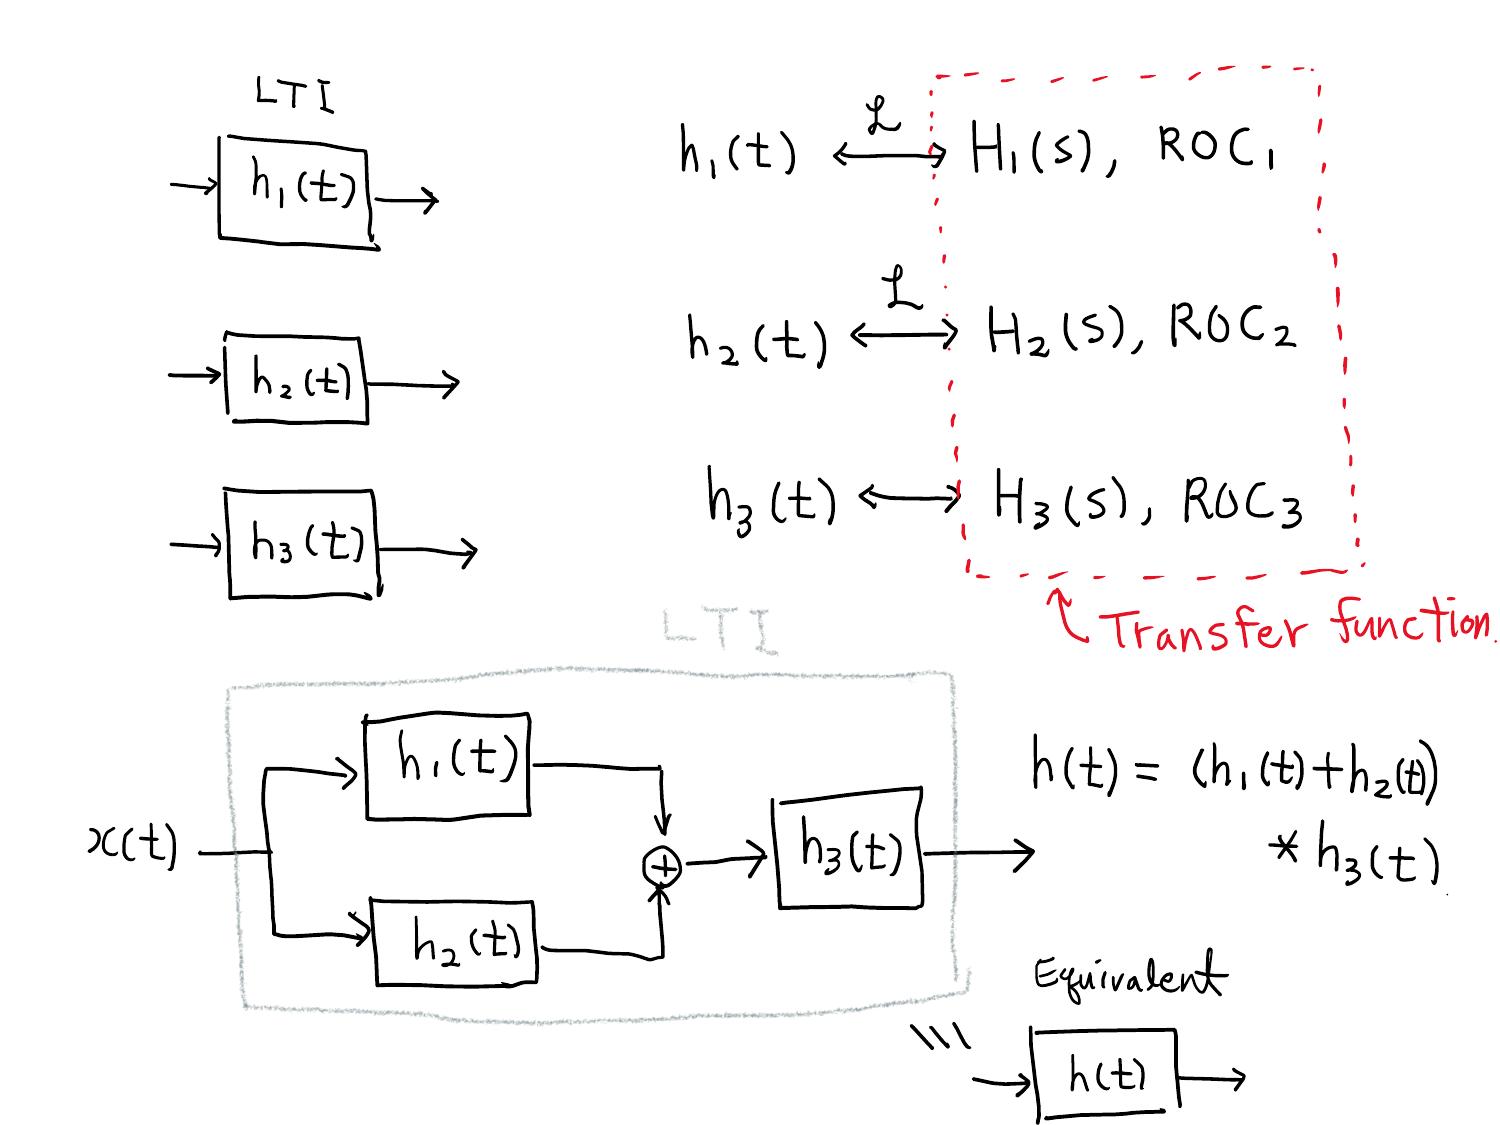 LTI
h₁(t)
h₂(t)
h₃(t)
h₁(t) ⟷ ℒ H₁(s), ROC₁
h₂(t) ⟷ ℒ H₂(s), ROC₂
h₃(t) ⟷ H₃(s), ROC₃
Transfer function.
LTI
x(t)
h₁(t)
h₂(t)
+
h₃(t)
h(t) = (h₁(t)+h₂(t))
* h₃(t)
Equivalent
h(t)